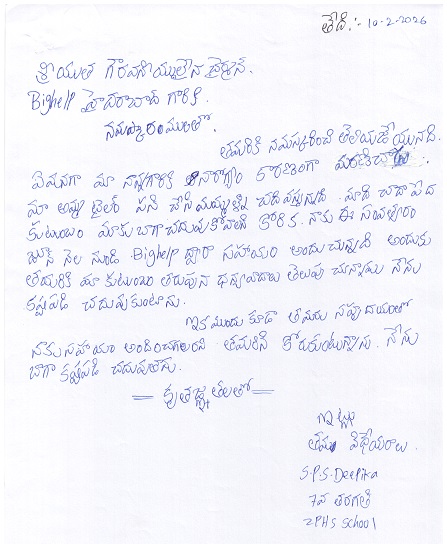 తేది:- 10-2-2026
శ్రీయుత గౌరవనీయులైన చైర్మన్.
Bighelp హైదరాబాద్ గారికి
నమస్కారములతో.
తమరికి నమస్కరించి తెలియజేయునది.
ఏమనగా మా నాన్నగారికి అనారోగ్యం కారణంగా మరణించారు.
మా అమ్మ టైలర్ పని చేసి మమ్మల్ని చదివిస్తున్నది. మాది చాలా పేద
కుటుంబం మాకు బాగా చదువుకోవాలని కోరిక. నాకు ఈ సంవత్సరం
జూన్ నెల నుండి Bighelp ద్వారా సహాయం అందుచున్నది అందుకు
తమరికి మా కుటుంబం తరుపున ధన్యవాదాలు తెలుపు చున్నాము నేను
కష్టపడి చదువుకుంటాను.
ఇకముందు కూడా తమరు సహృదయంతో
నాకు సహాయం అందించగలరని తమరిని కోరుకుంటున్నాను. నేను
బాగా కష్టపడి చదువుతాను.
కృతజ్ఞతలతో
ఇట్లు
తమ విధేయురాలు.
S.P.S-Deepika
7వ తరగతి
ZPHS School